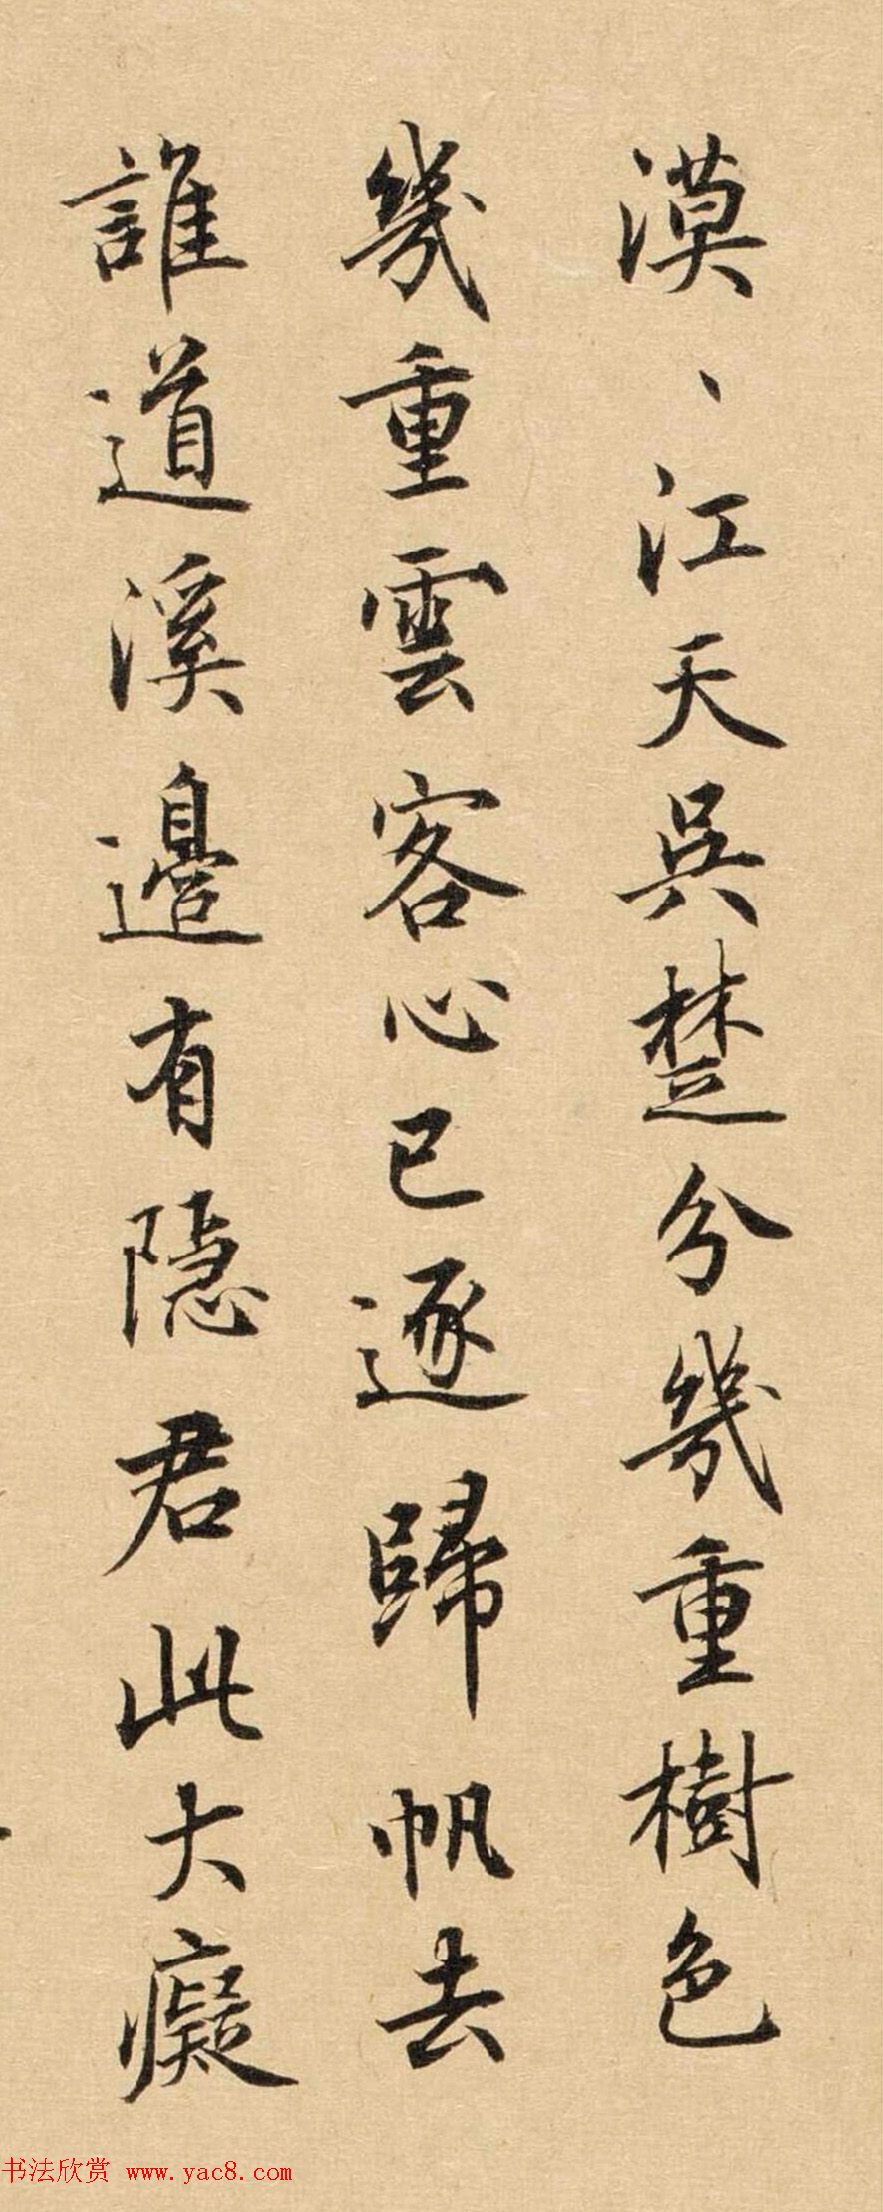 漠、江天吳楚分幾重樹色
幾重雲客心已逐歸帆去
誰道溪邊有隱君此大癡
书法欣赏 www.yac8.com